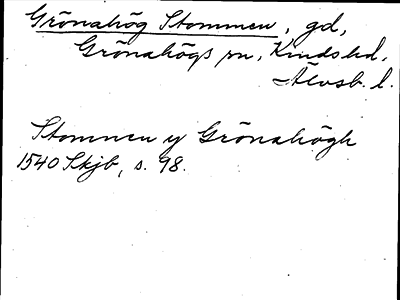 Grönahög Stommen, gd,
Grönahögs sn, Kinds hd,
Älvsb. l.
Stommen y Grönahögh
1540 Skjb, s. 98.